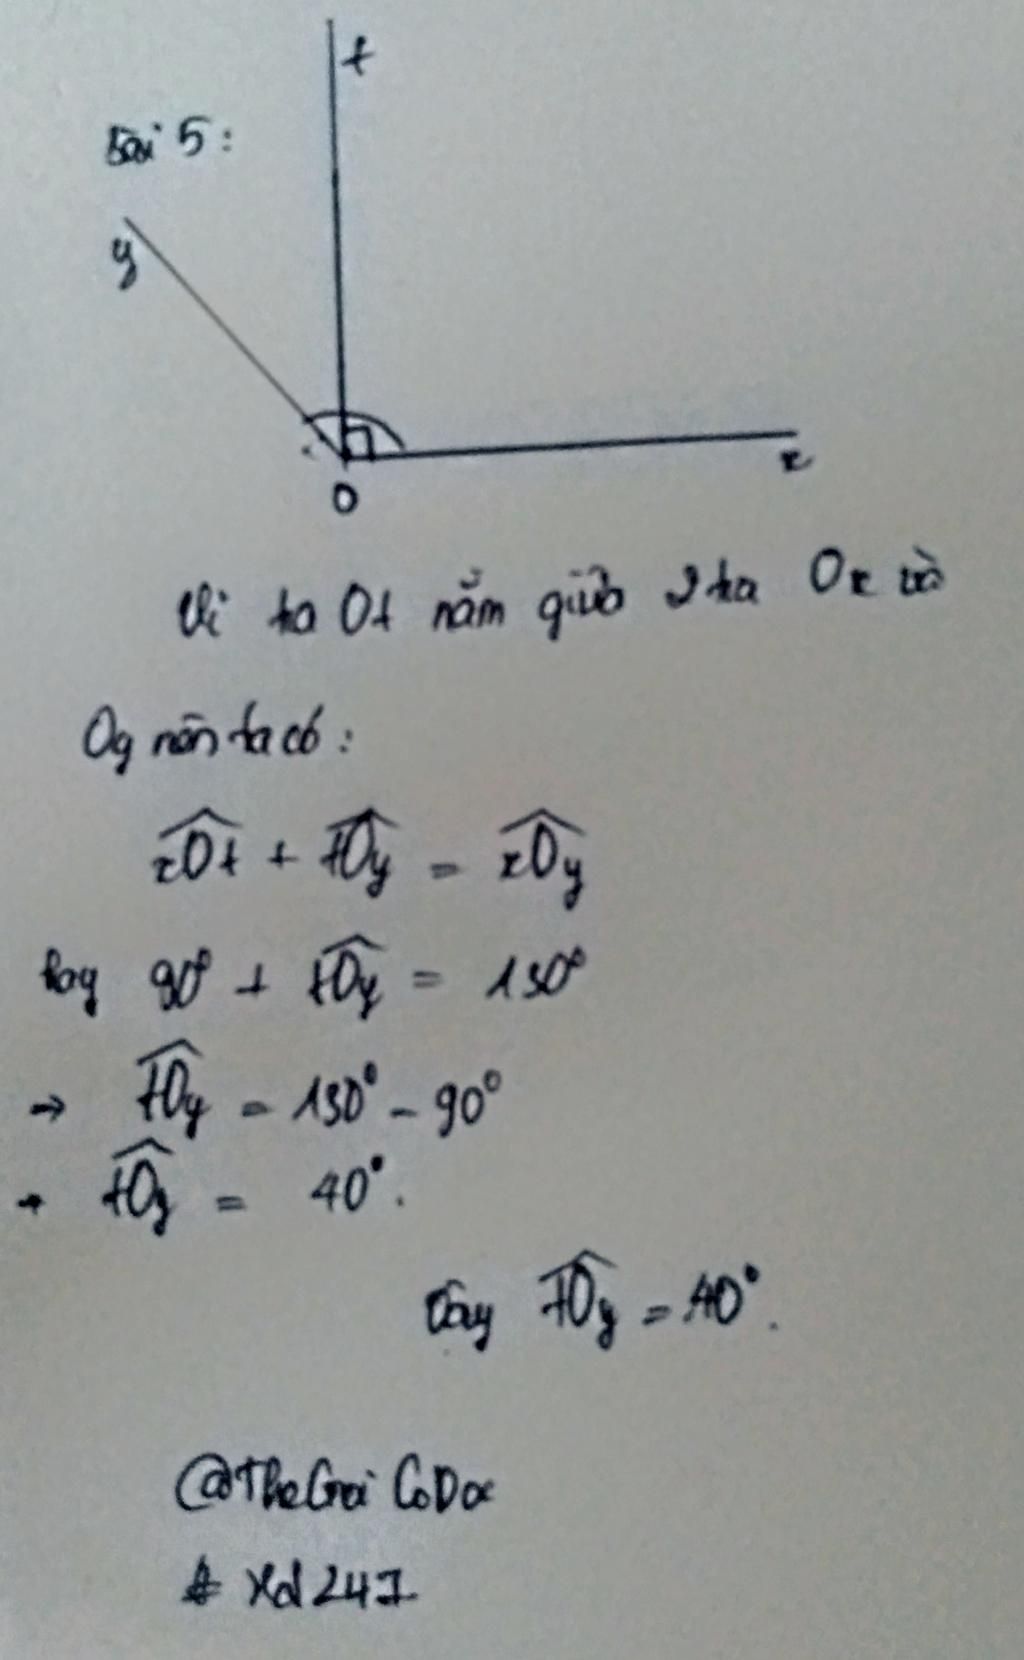 t
Bài 5:
y
x
O
Vì tia Ot nằm giữa 2 tia Ox và
Oy nên ta có:
xOt + tOy = xOy
hay 90° + tOy = 130°
→ tOy = 130° - 90°
→ tOy = 40°.
Vậy tOy = 40°.
@TheGioiCoDoc
# Hd247